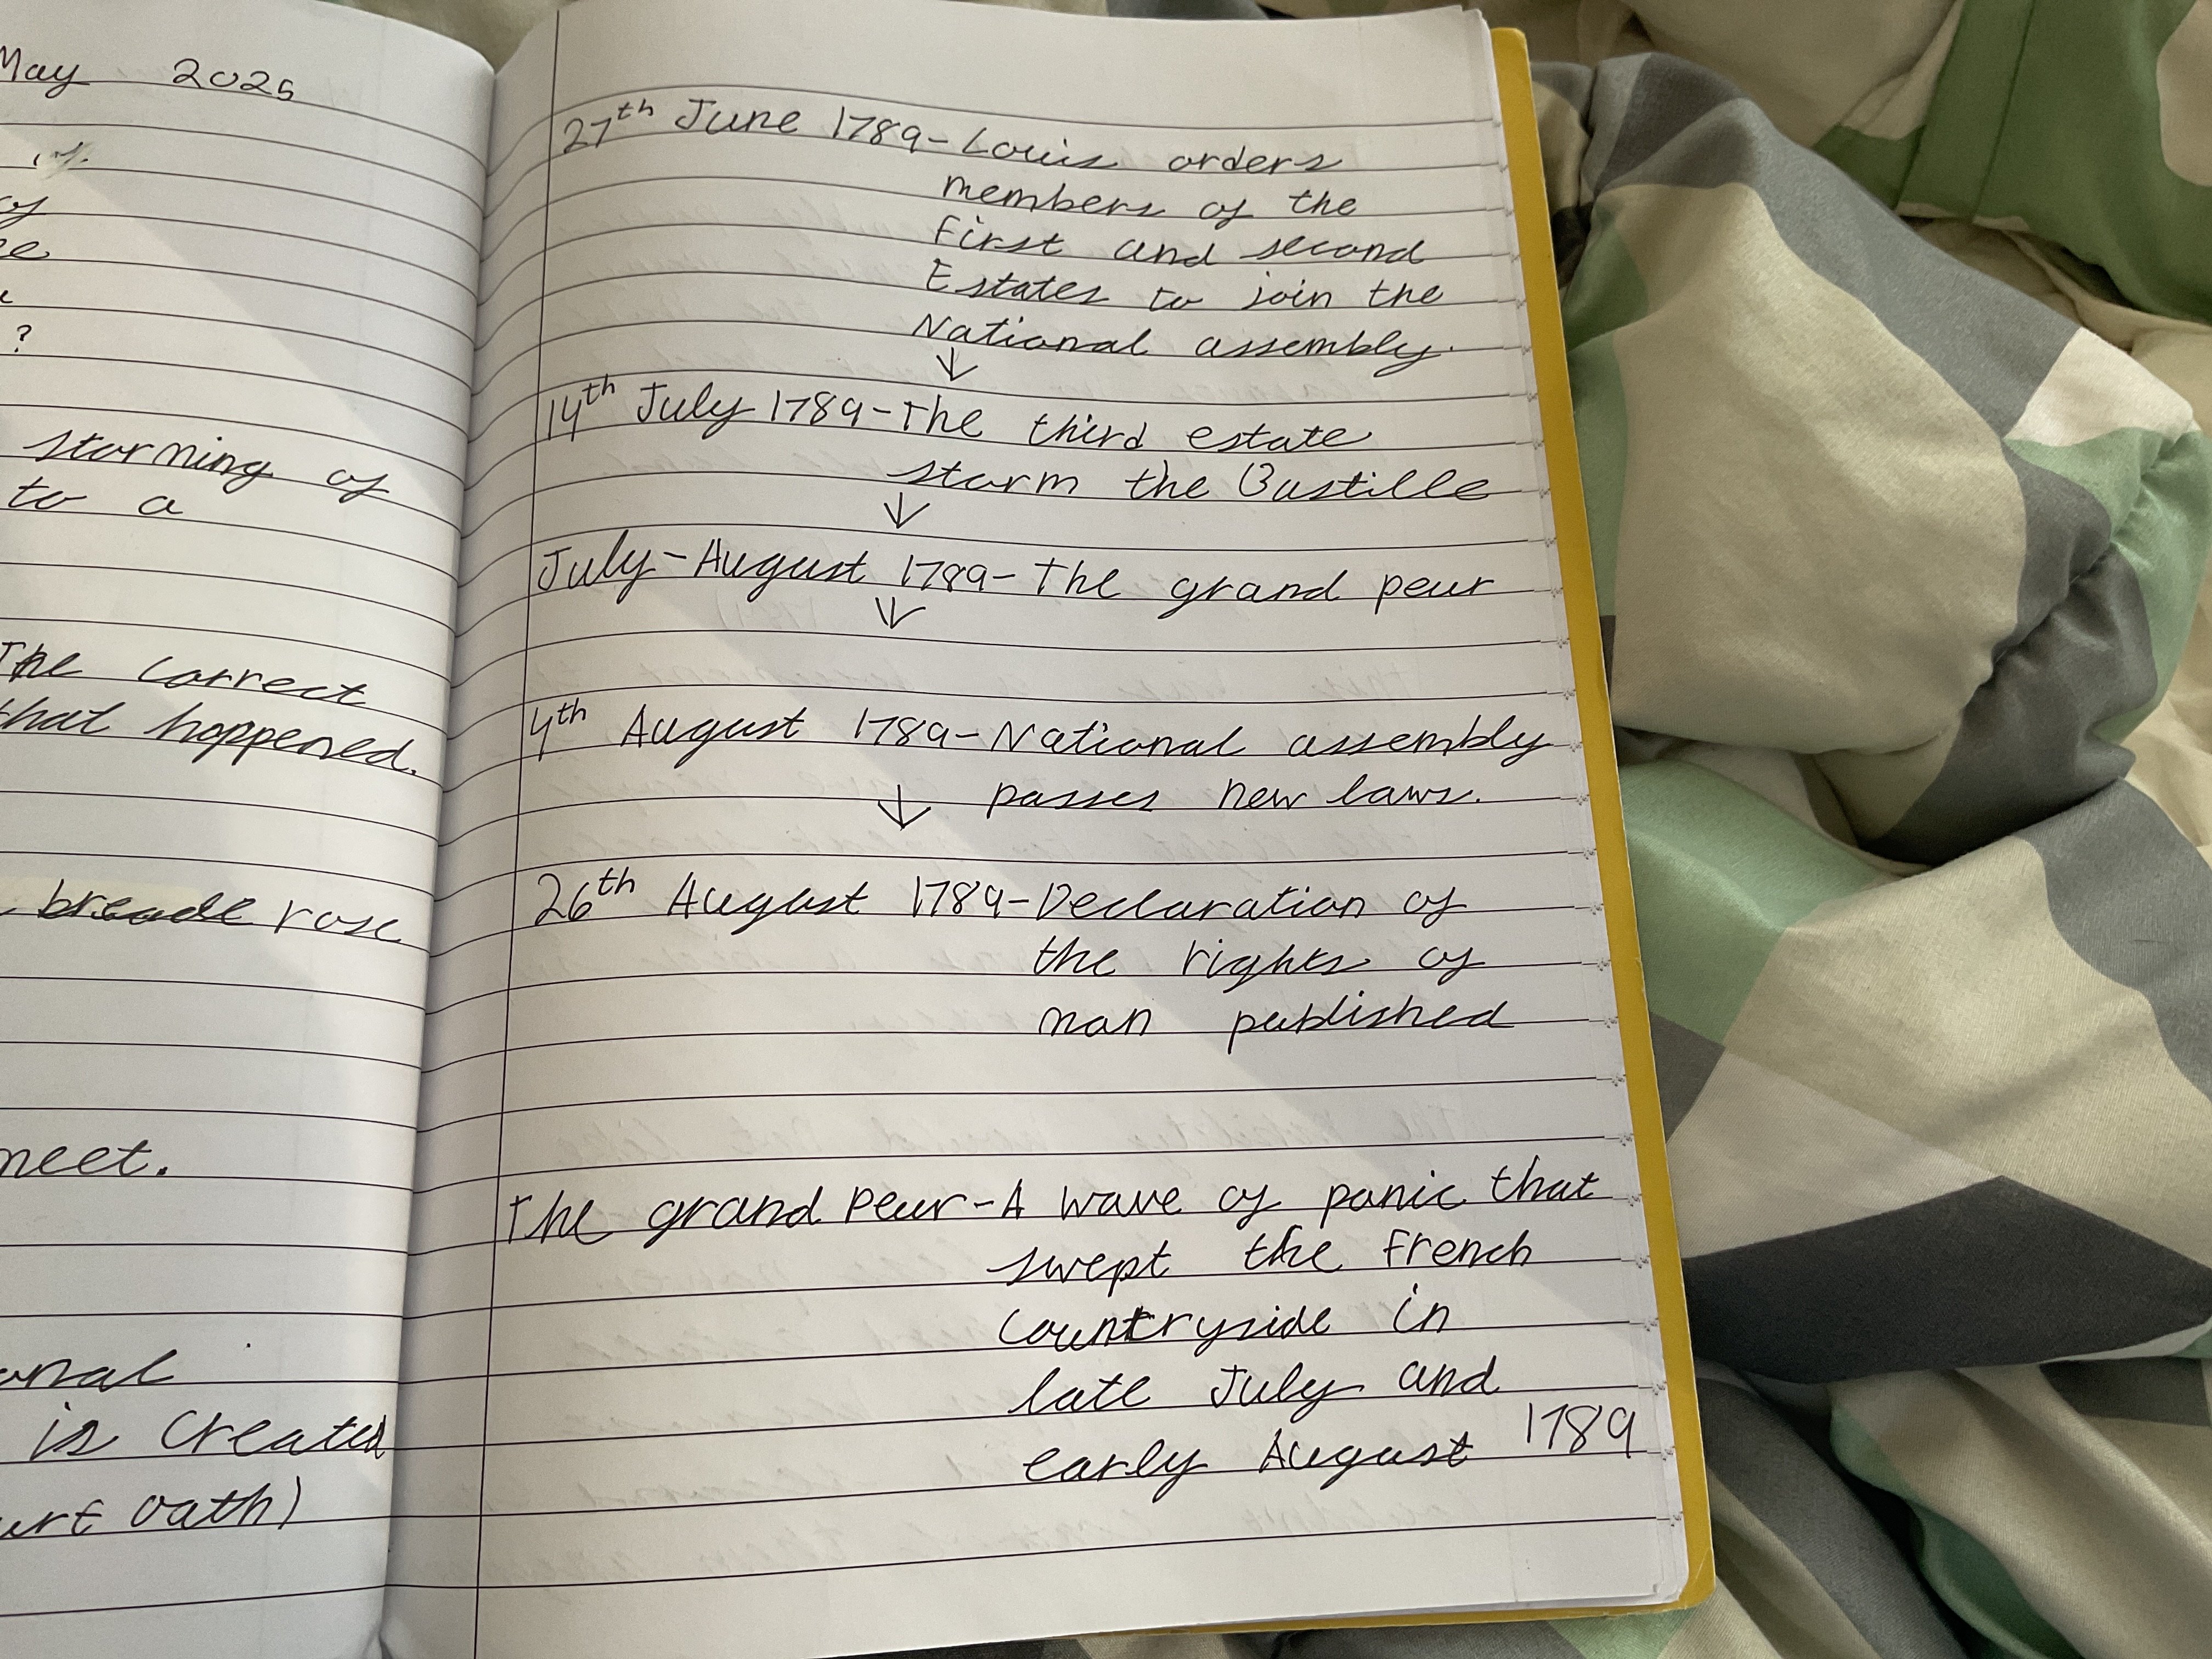 May 2025
of
?
storming of
to a
The correct
that happened.
breade rose
meet.
is created
oath)
27th June 1789-Louis orders
members of the
First and second
Estates to join the
National assembly.
↓
14th July 1789-The third estate
storm the Bastille
↓
July-August 1789-The grand peur
↓
4th August 1789-National assembly
passes new laws.
↓
26th August 1789-Declaration of
the rights of
man published
The grand peur-A wave of panic that
swept the French
countryside in
late July and
early August 1789